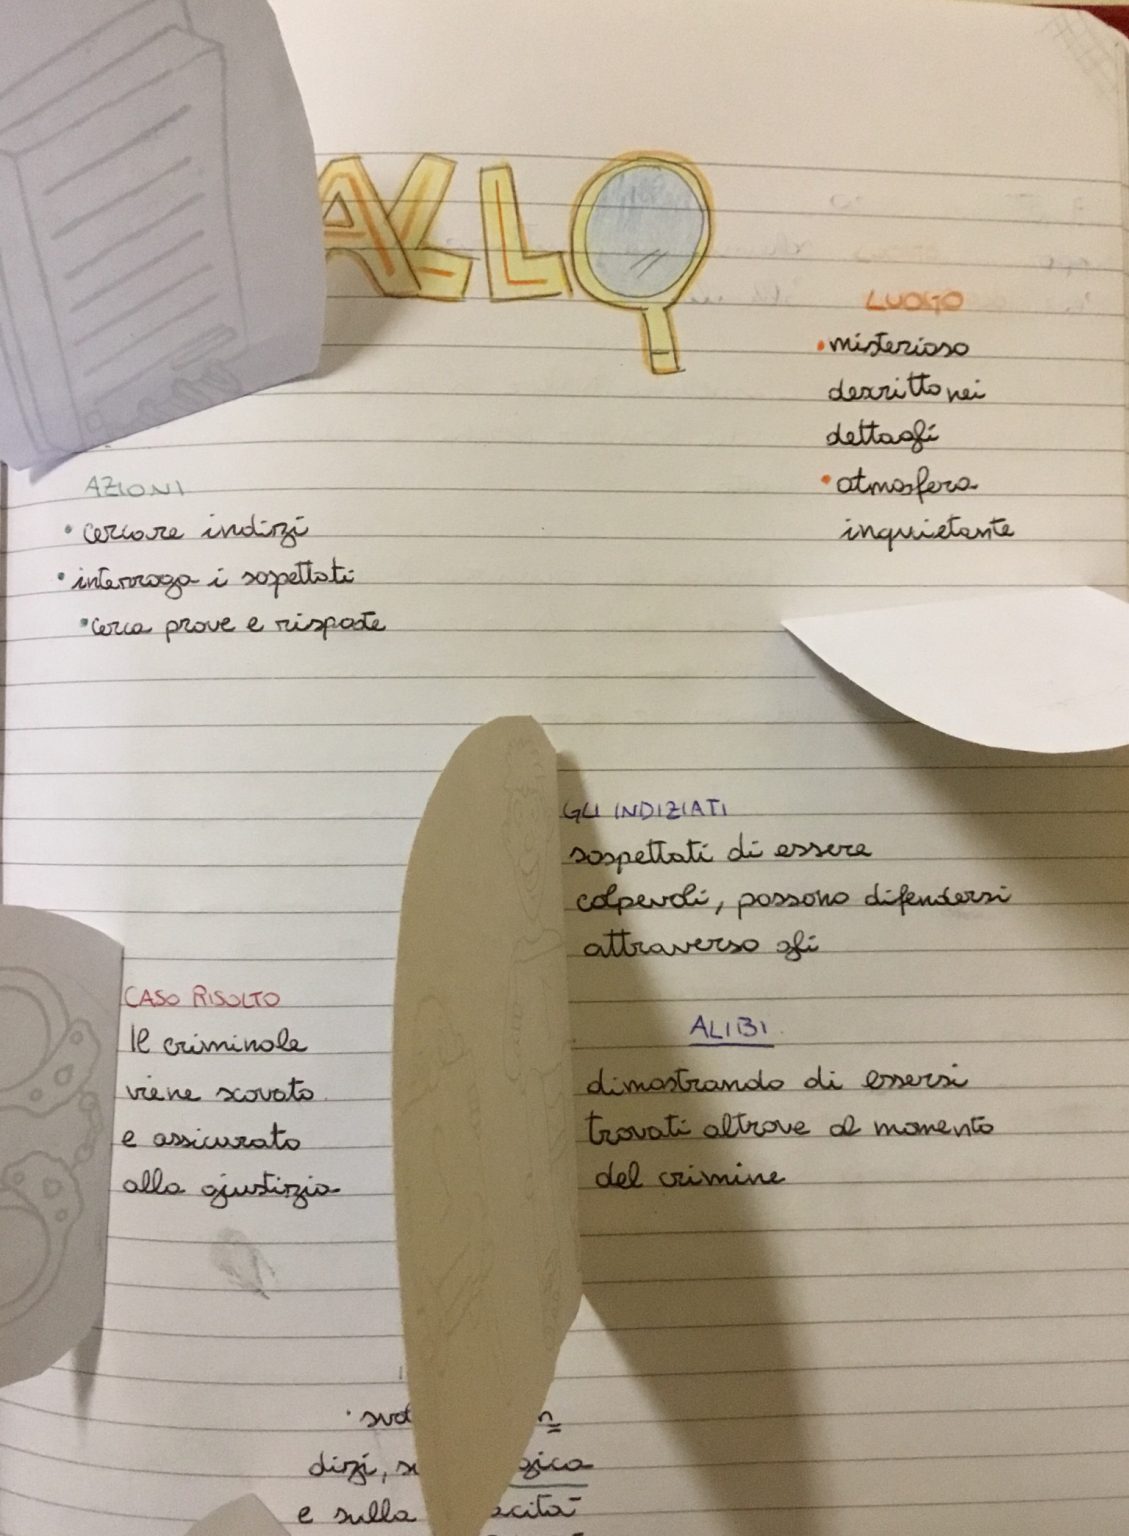 ALLO
LUOGO
• misterioso
descritto nei
dettagli
• atmosfera
inquietante
AZIONI
• cercare indizi
• interroga i sospettati
• cerca prove e risposte
GLI INDIZIATI
sospettati di essere
colpevoli, possono difendersi
attraverso gli
ALIBI
dimostrando di essersi
trovati altrove al momento
del crimine
CASO RISOLTO
Il criminale
viene scovato
e assicurato
alla giustizia
dizi,
e sulla